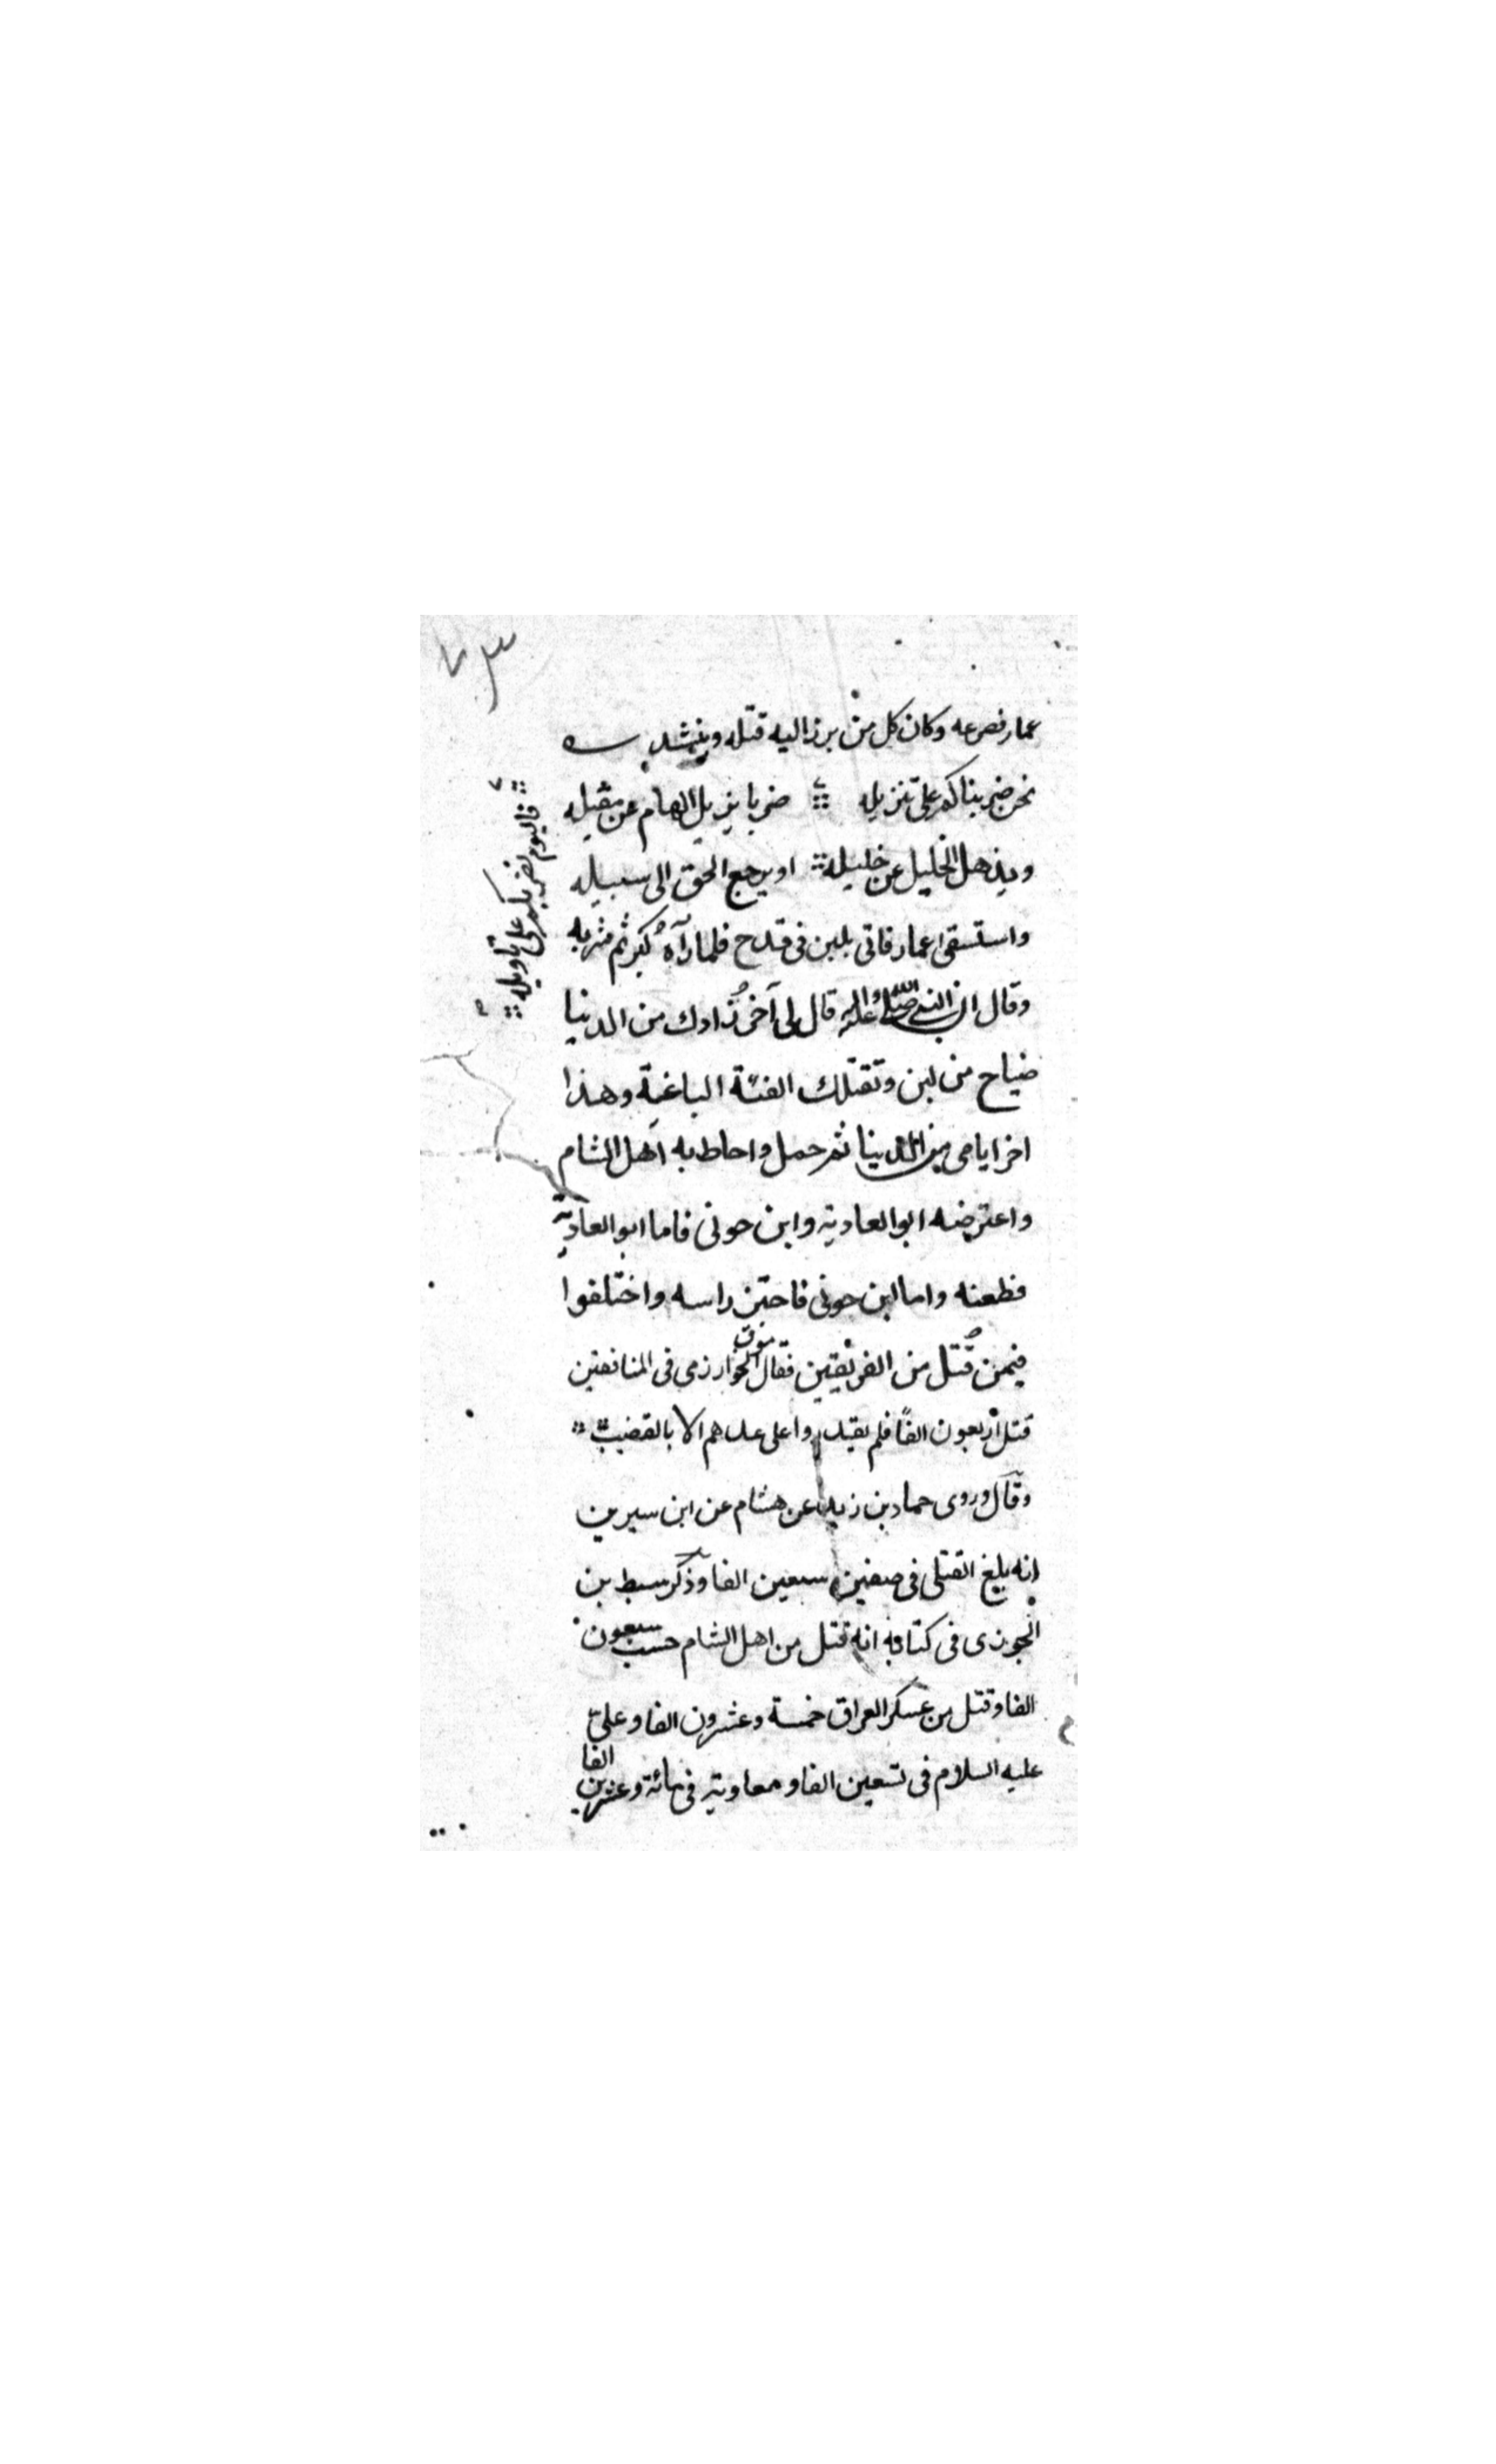 ٧٣
عمار فصرعه وكان كل من برز اليه قتله وينشد
نحن ضربناكم على تنزيله ضربا يزيل الهام عن مقيله
ويذهل الخليل عن خليله او يرجع الحق الى سبيله
فاليوم نضربكم على تأويله
واستسقى عمار فاتى بلبن في قدح فلما رآه كبر ثم شربه
وقال ان النبي صلى الله عليه واله قال لي آخر زادك من الدنيا
ضياح من لبن وتقتلك الفئة الباغية وهذا
اخر ايامي من الدنيا ثم حمل واحاط به اهل الشام
واعترضه ابو العادية وابن جوني فاما ابو العادية
فطعنه واما ابن جوني فاحتز راسه واختلفوا
فيمن قتل من الفريقين فقال الخوارزمي في المناقب
قتل اربعون الفًا فلم يقدروا على عدهم الا بالقصب
وقال وروى حماد بن زيد عن هشام عن ابن سيرين
انه بلغ القتلى في صفين سبعين الفا وذكر سبط بن
الجوزى في كتابه انه قتل من اهل الشام سبعون
الفا وقتل من عسكر العراق خمسة وعشرون الفا وعلي
عليه السلام في تسعين الفا ومعاوية في مائة وعشرين الفا